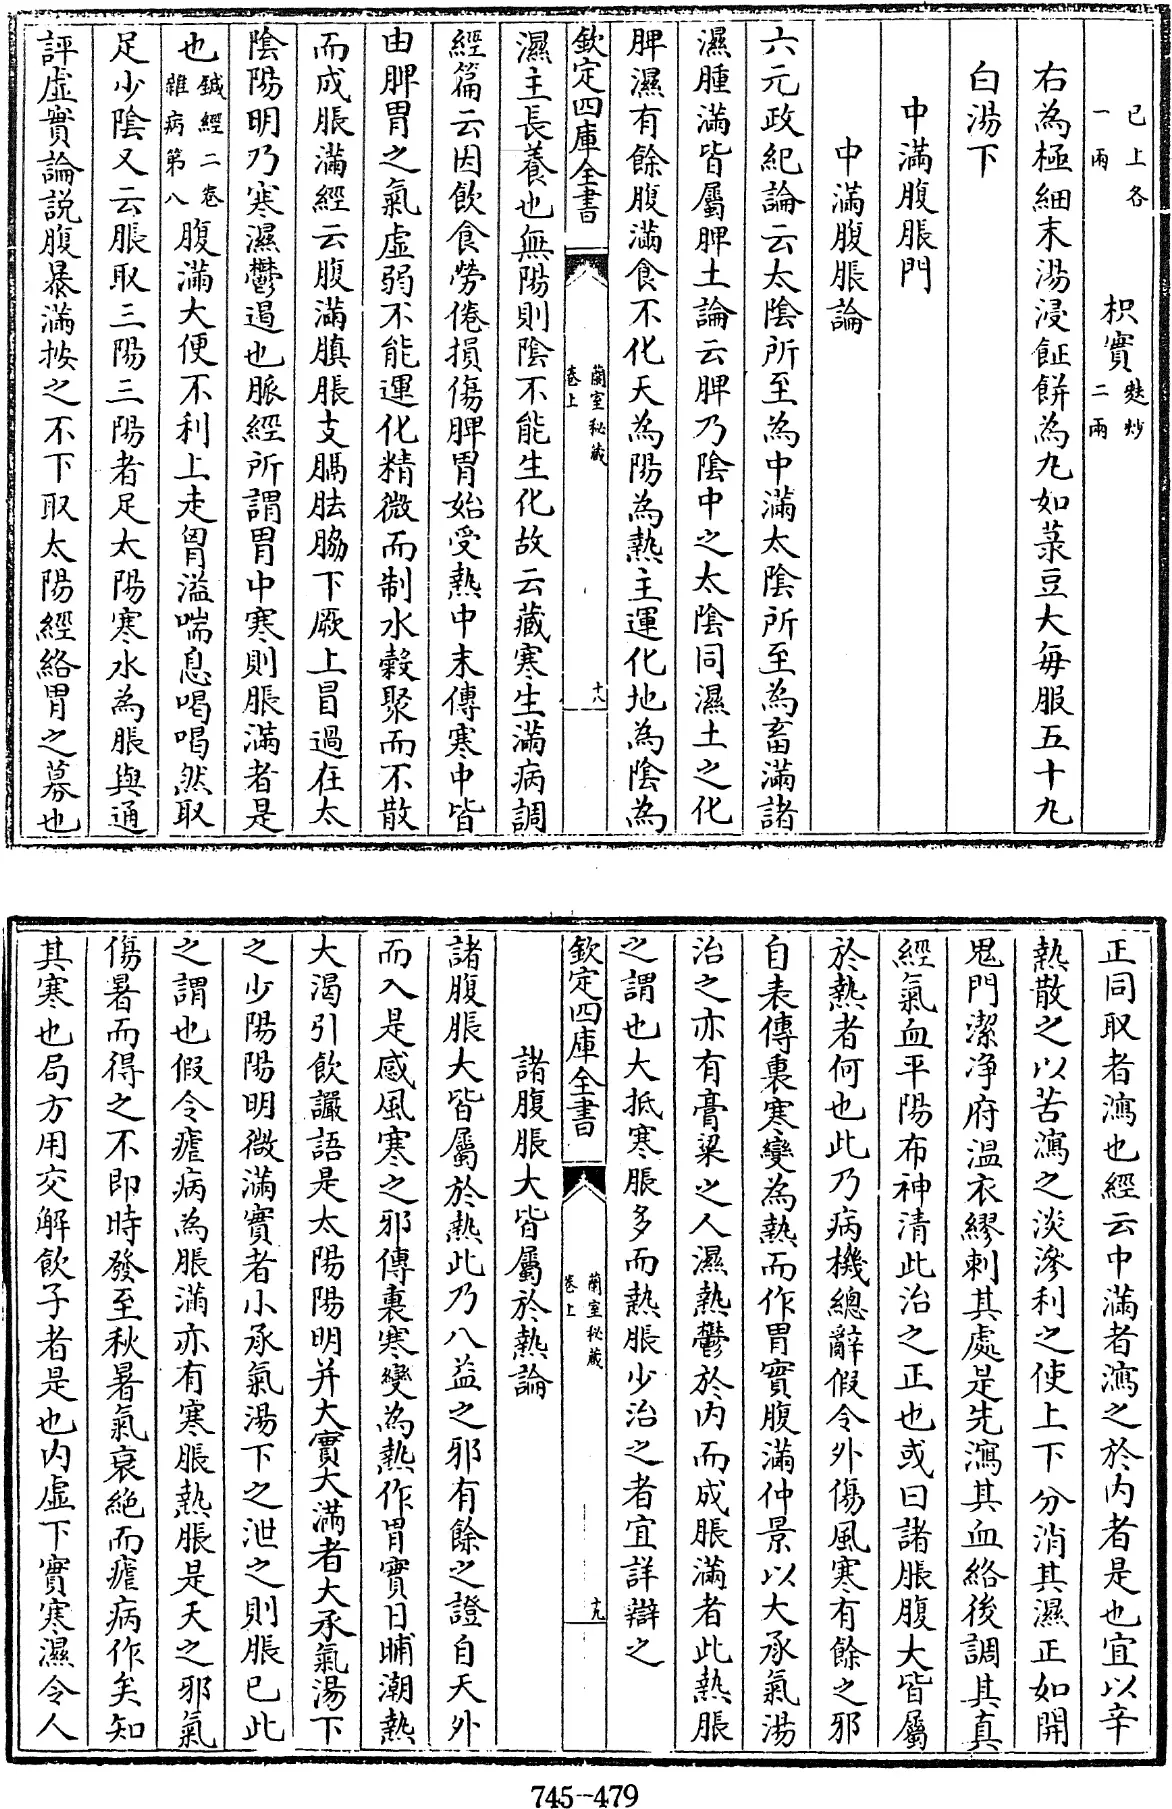 已上各一兩　枳實麩炒二兩
右為極細末湯浸䭔餅為丸如菉豆大每服五十丸
白湯下
中滿腹脹門
中滿腹脹論
六元政紀論云太陰所至為中滿太陰所至為畜滿諸
濕腫滿皆屬脾土論云脾乃陰中之太陰同濕土之化
脾濕有餘腹滿食不化天為陽為熱主運化地為陰為
濕主長養也無陽則陰不能生化故云藏寒生滿病調
經篇云因飲食勞倦損傷脾胃始受熱中末傳寒中皆
由脾胃之氣虛弱不能運化精微而制水穀聚而不散
而成脹滿經云腹滿䐜脹支膈胠脇下厥上冒過在太
陰陽明乃寒濕鬱遏也脈經所謂胃中寒則脹滿者是
也鍼經二卷雜病第八腹滿大便不利上走胷溢喘息喝喝然取
足少陰又云脹取三陽三陽者足太陽寒水為脹與通
評虛實論説腹暴滿按之不下取太陽經絡胃之募也
欽定四庫全書
蘭室秘藏
卷上
十八
正同取者瀉也經云中滿者瀉之於内者是也宜以辛
熱散之以苦瀉之淡滲利之使上下分消其濕正如開
鬼門潔净府温衣繆刺其處是先瀉其血絡後調其真
經氣血平陽布神清此治之正也或曰諸脹腹大皆屬
於熱者何也此乃病機總辭假令外傷風寒有餘之邪
自表傳裏寒變為熱而作胃實腹滿仲景以大承氣湯
治之亦有膏粱之人濕熱鬱於内而成脹滿者此熱脹
之謂也大抵寒脹多而熱脹少治之者宜詳辯之
欽定四庫全書
蘭室秘藏
卷上
十九
諸腹脹大皆屬於熱論
諸腹脹大皆屬於熱此乃八益之邪有餘之證自天外
而入是感風寒之邪傳裏寒變為熱作胃實日晡潮熱
大渴引飲讝語是太陽陽明并大實大滿者大承氣湯下
之少陽陽明微滿實者小承氣湯下之泄之則脹已此
之謂也假令瘧病為脹滿亦有寒脹熱脹是天之邪氣
傷暑而得之不即時發至秋暑氣衰絶而瘧病作矣知
其寒也局方用交解飲子者是也内虛下實寒濕令人
745--479